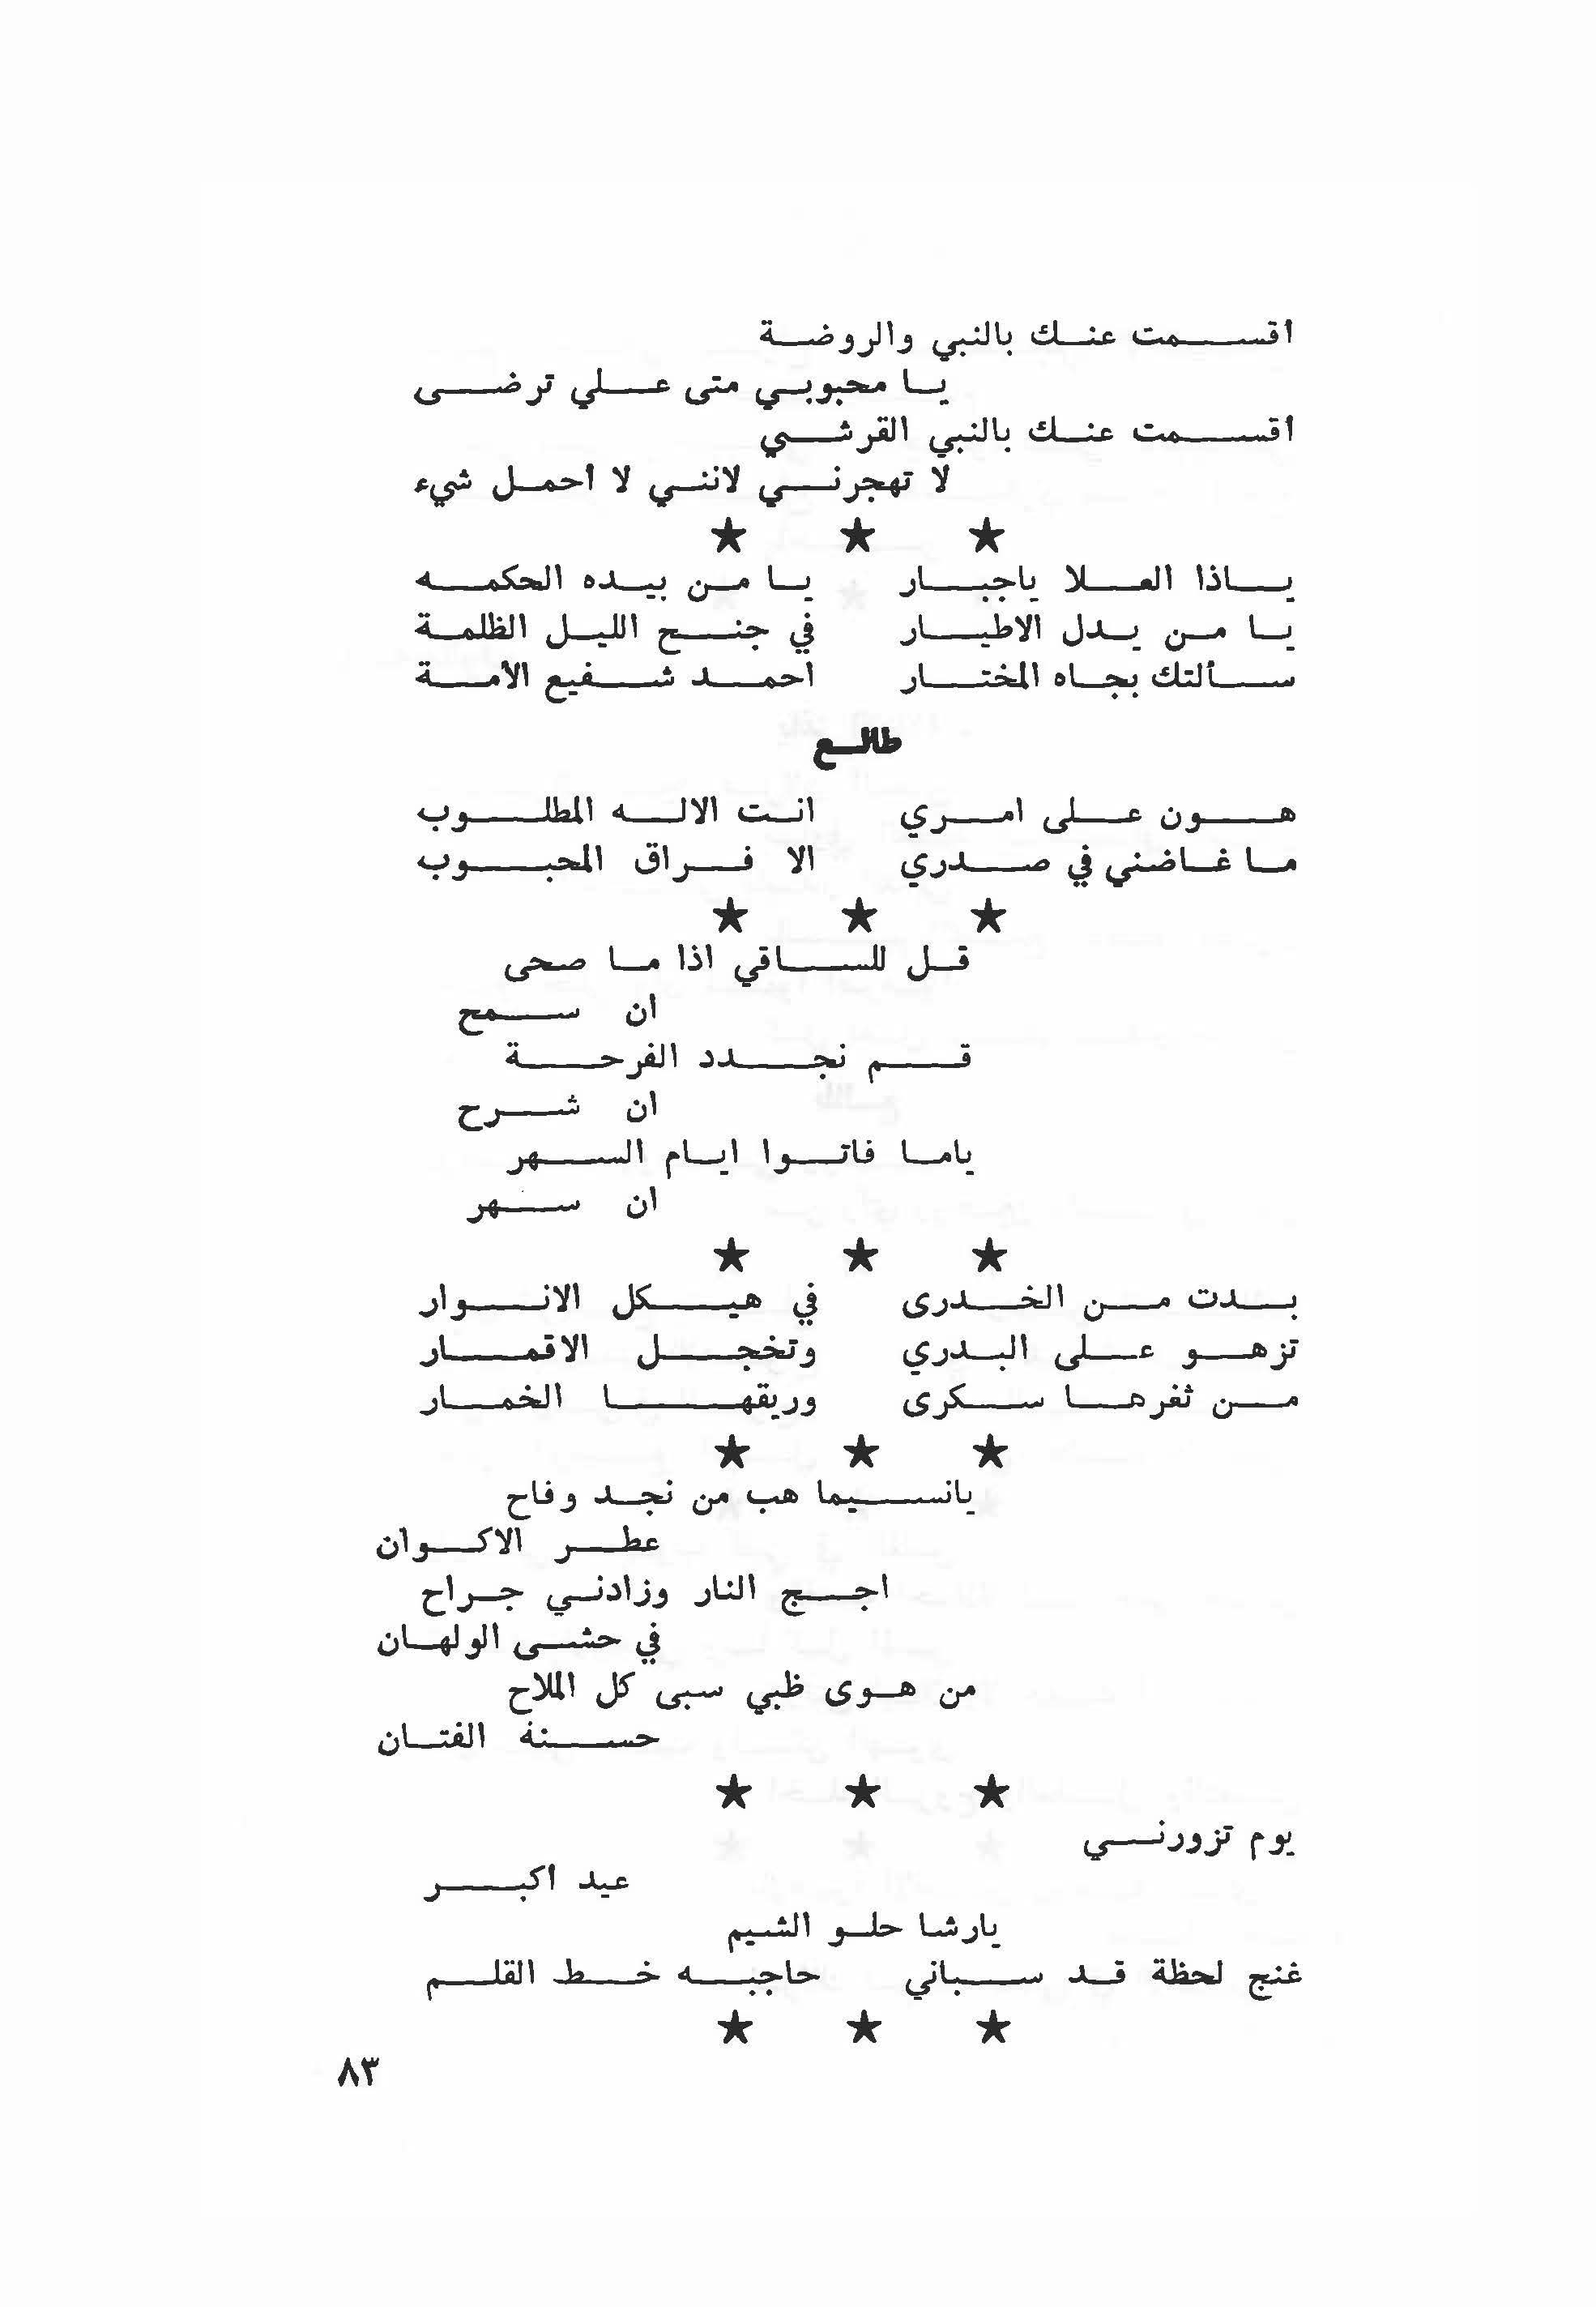 أقسمت عنك بالنبي والروضة
يا محبوبي متى علي ترضى
أقسمت عنك بالنبي القرشي
لا تهجرني لانني لا أحمل شيء
★ ★ ★
ياذا العلا ياجبار يا من بيده الحكمه
يا من يدل الاطيار في جنح الليل الظلمة
سألتك بجاه المختار احمد شفيع الأمة
طالع
هون على امري انت الاله المطلوب
ما غاضني في صدري الا فراق المحبوب
★ ★ ★
قل للساقي اذا ما صحى
ان سمح
قم نجدد الفرحة
ان شرح
ياما فاتوا ايام السهر
ان سهر
★ ★ ★
بدت من الخدرى في هيكل الانوار
تزهو على البدري وتخجل الاقمار
من ثغرها سكرى وريقها الخمار
★ ★ ★
يانسيما هب من نجد وفاح
عطر الاكوان
اجج النار وزادني جراح
في حشى الولهان
من هوى ظبي سبى كل الملاح
حسنه الفتان
★ ★ ★
يوم تزورني
عيد أكبر
يارشا حلو الشيم
غنج لحظة قد سباني حاجبه خط القلم
★ ★ ★
٨٣